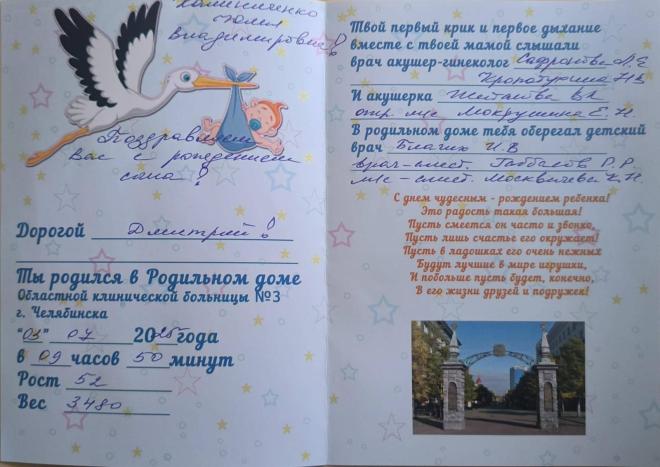 Юлия
Владимировна!
Поздравляем
Вас с рождением
сына!
Дорогой Дмитрий!
Ты родился в Родильном доме
Областной клинической больницы №3
г. Челябинска
"03" 07 2025 года
в 09 часов 50 минут
Рост 52
Вес 3480
Твой первый крик и первое дыхание
вместе с твоей мамой слышали
врач акушер-гинеколог
И акушерка
опр. м/с Мокрушина Е. Н.
В родильном доме тебя оберегал детский
врач
врач-анест.
м/с-анест.
С днем чудесным - рождением ребенка!
Это радость такая большая!
Пусть смеется он часто и звонко,
Пусть лишь счастье его окружает!
Пусть в ладошках его очень нежных
Будут лучшие в мире игрушки,
И побольше пусть будет, конечно,
В его жизни друзей и подружек!